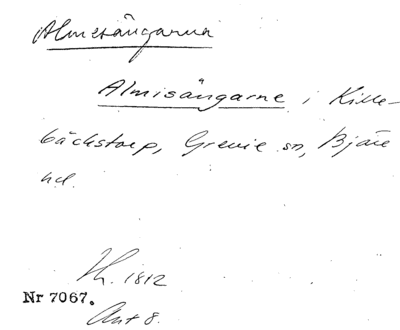 Almesängarna
Almisängarne i Kille-
bäckstorp, Grevie sn, Bjäre
hd.
Lh. 1812
Nr 7067.
Akt 8.